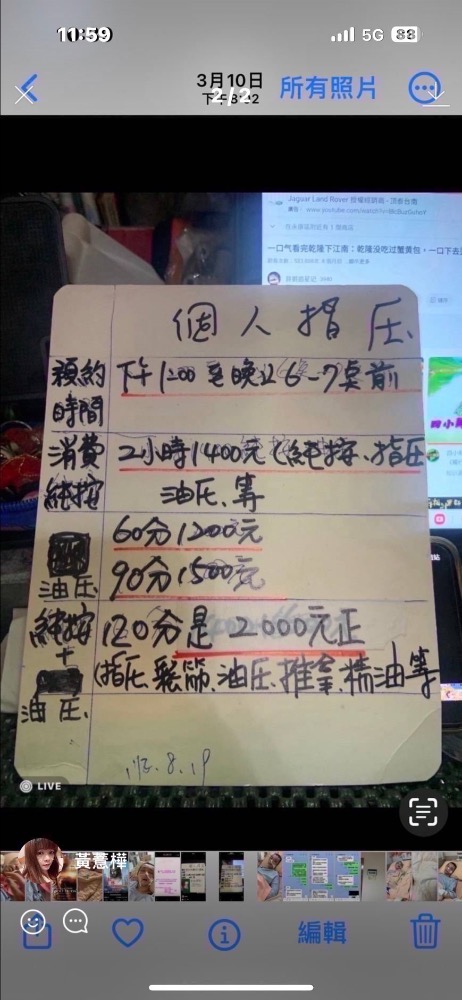 11:59
5G
88
3月10日
2/2
所有照片
Jaguar Land Rover 授權經銷商 - 頂泰台南
一口气看完乾隆下江南：乾隆没吃过蟹黄包，一口下去
個人指压
預約時間
下午1200至晚上6-7桌前
消費純按
2小時1400元(純按、指压
油压、等
油压
60分1200元
90分1500元
純按+
油压、
120分是2000元正
(指压、鬆筋、油压、推拿、精油等
112.8.19
LIVE
黃薏樺
編輯